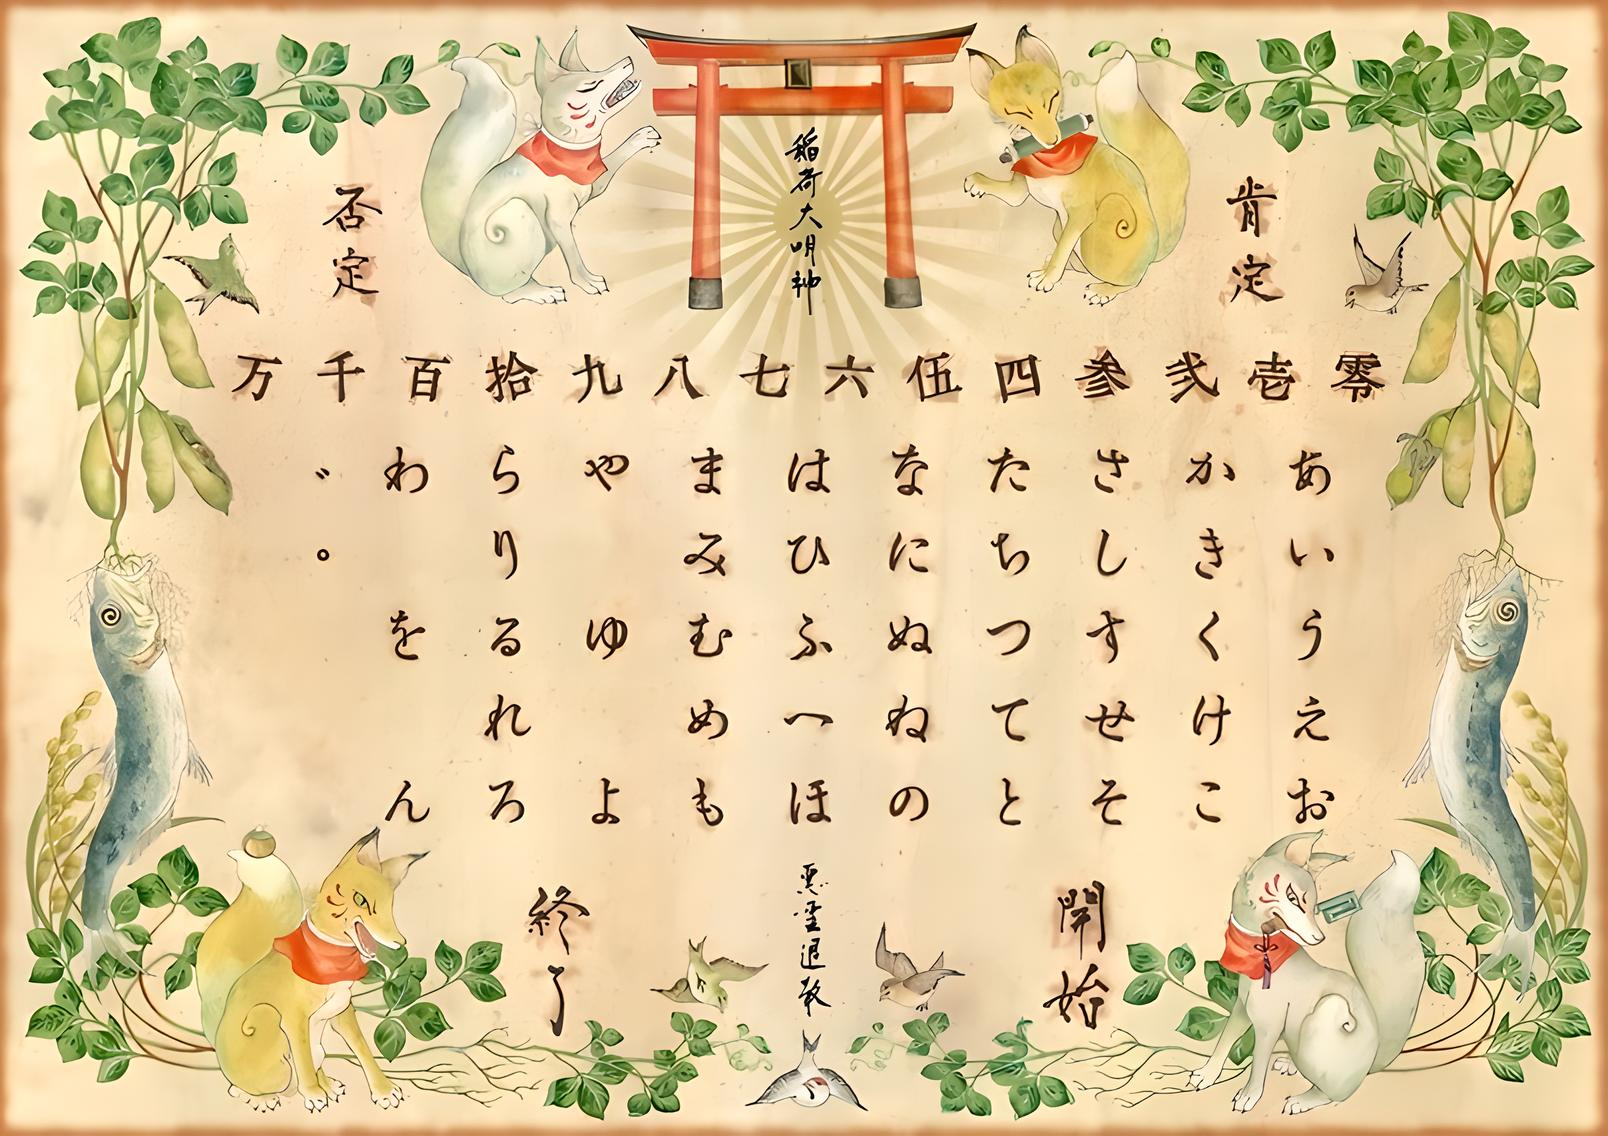 稲荷大明神
肯定
否定
零 壱 弐 参 四 伍 六 七 八 九 拾 百 千 万
あいうえお
かきくけこ
さしすせそ
たちつてと
なにぬねの
はひふへほ
まみむめも
やゆよ
らりるれろ
わをん
゛゜
開始
悪霊退散
終了